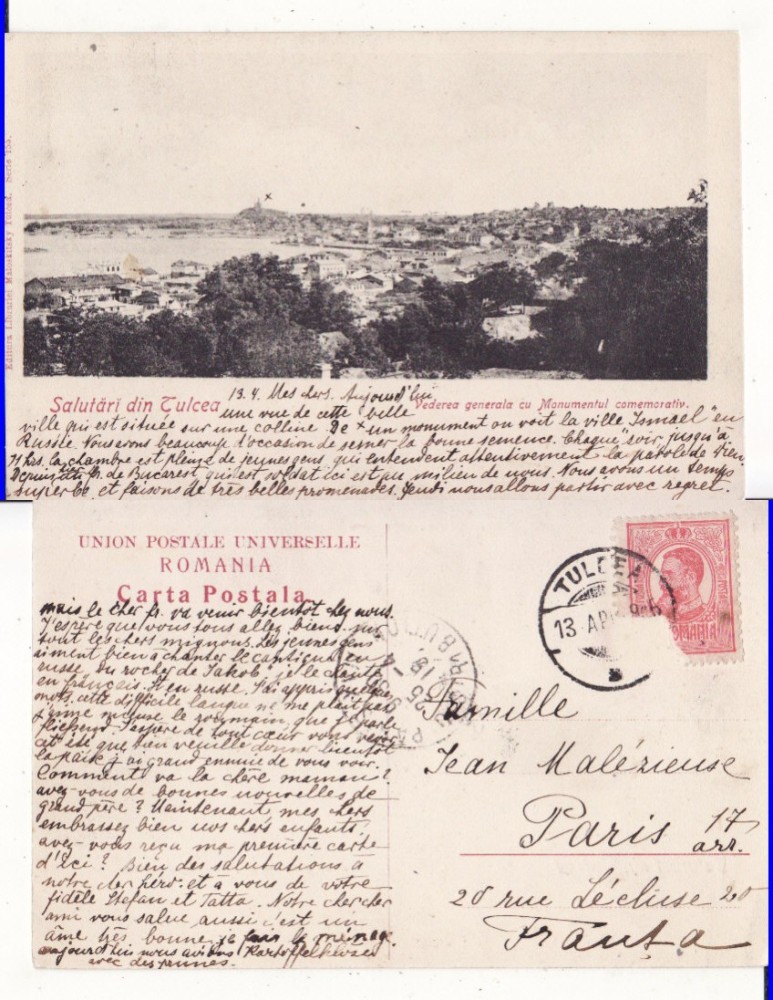 Editura Librariei
Serie 153.
Salutări din Tulcea
Vederea generala cu Monumentul comemorativ.
13.4. Mes chers. Aujourd'hui
une vue de cette belle
ville qui est située sur une colline. De x un monument on voit la ville "Ismael" en
Russie. Nous avons beaucoup d'occasion de semer la bonne semence. Chaque soir jusqu'à
11 hrs. la chambre est pleine de jeunes gens, qui entendent attendivement la parole de Dieu.
Depuis fr. de Bucarest qui est soldat ici est au milieu de nous. Nous avons un temps
superbe et faisons de très belles promenades. Jeudi nous allons partir avec regret.
UNION POSTALE UNIVERSELLE
ROMANIA
Carta Postala
mais le cher fr. va venir bientôt chez nous.
J'espère que vous tous allez bien. sur
tout les chers mignons. Les jeunes gens
aiment bien à chanter le cantique en
russe "Du rocher de Jakob" je le chante
en français. St en russe. J'ai appris quelque
mots. cette difficile langue ne me plait pas
j'aime mieuse le roumain, que je parle
fliessend. J'espère de tout cœur vous revoir
cet été que Dieu veuille donner bientôt
la paix. j'ai grand ennuie de vous voir.
Comment va la chère maman?
avez-vous de bonnes nouvelles de
grand père? Maintenant mes chers
embrassez bien vos chers enfants.
avez-vous reçu ma première carte
d'ici? Bien des salutations à
notre cher et à vous de votre
fidèle Stefan et Tatta. Notre cher cher
ami vous salue aussi c'est un
âme très bonne. je fais le ménage
aujourd'hui nous avions
avec des prunes.
TULCEA
13 APR
ROMANIA
Famille
Jean Malézieuse
Paris 17
arr.
20 rue Lécluse 20
Franța